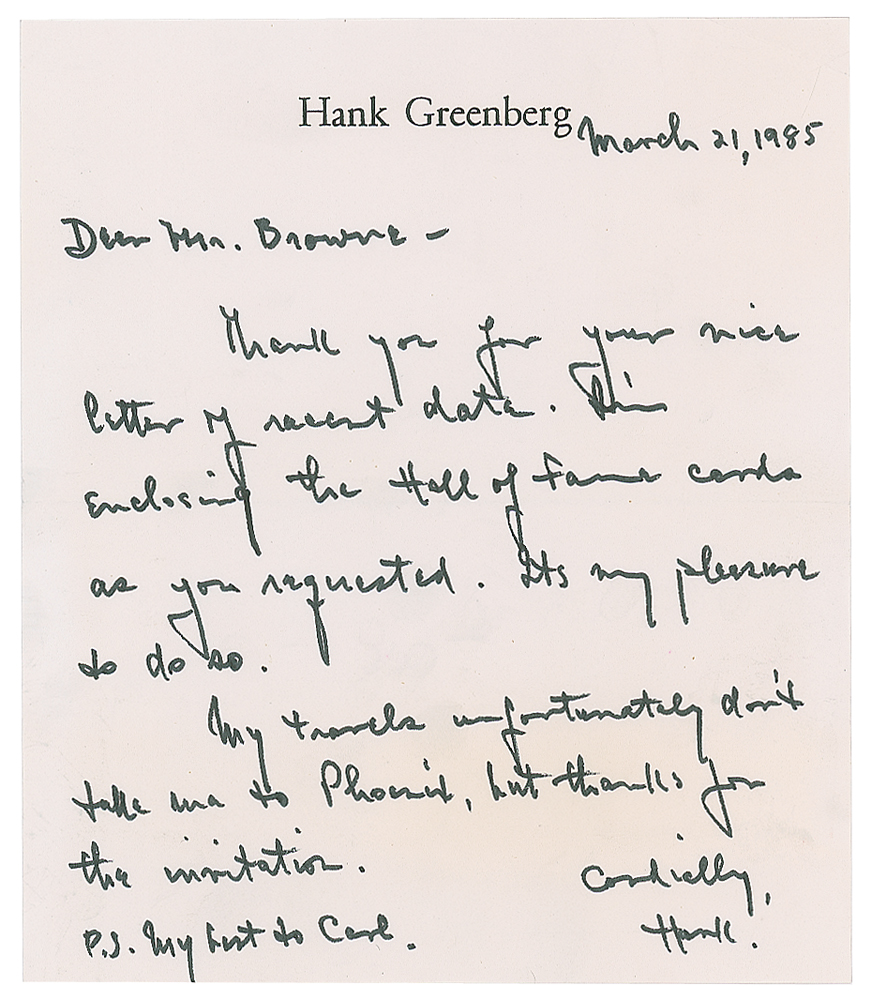 Hank Greenberg
March 21, 1985
Dear Mr. Browne -
Thank you for your nice
letter of recent date. I'm
enclosing the Hall of Fame cards
as you requested. Its my pleasure
to do so.
My travels unfortunately don't
take me to Phoenix, but thanks for
the invitation.
Cordially,
Hank.
P.S. My best to Carl.